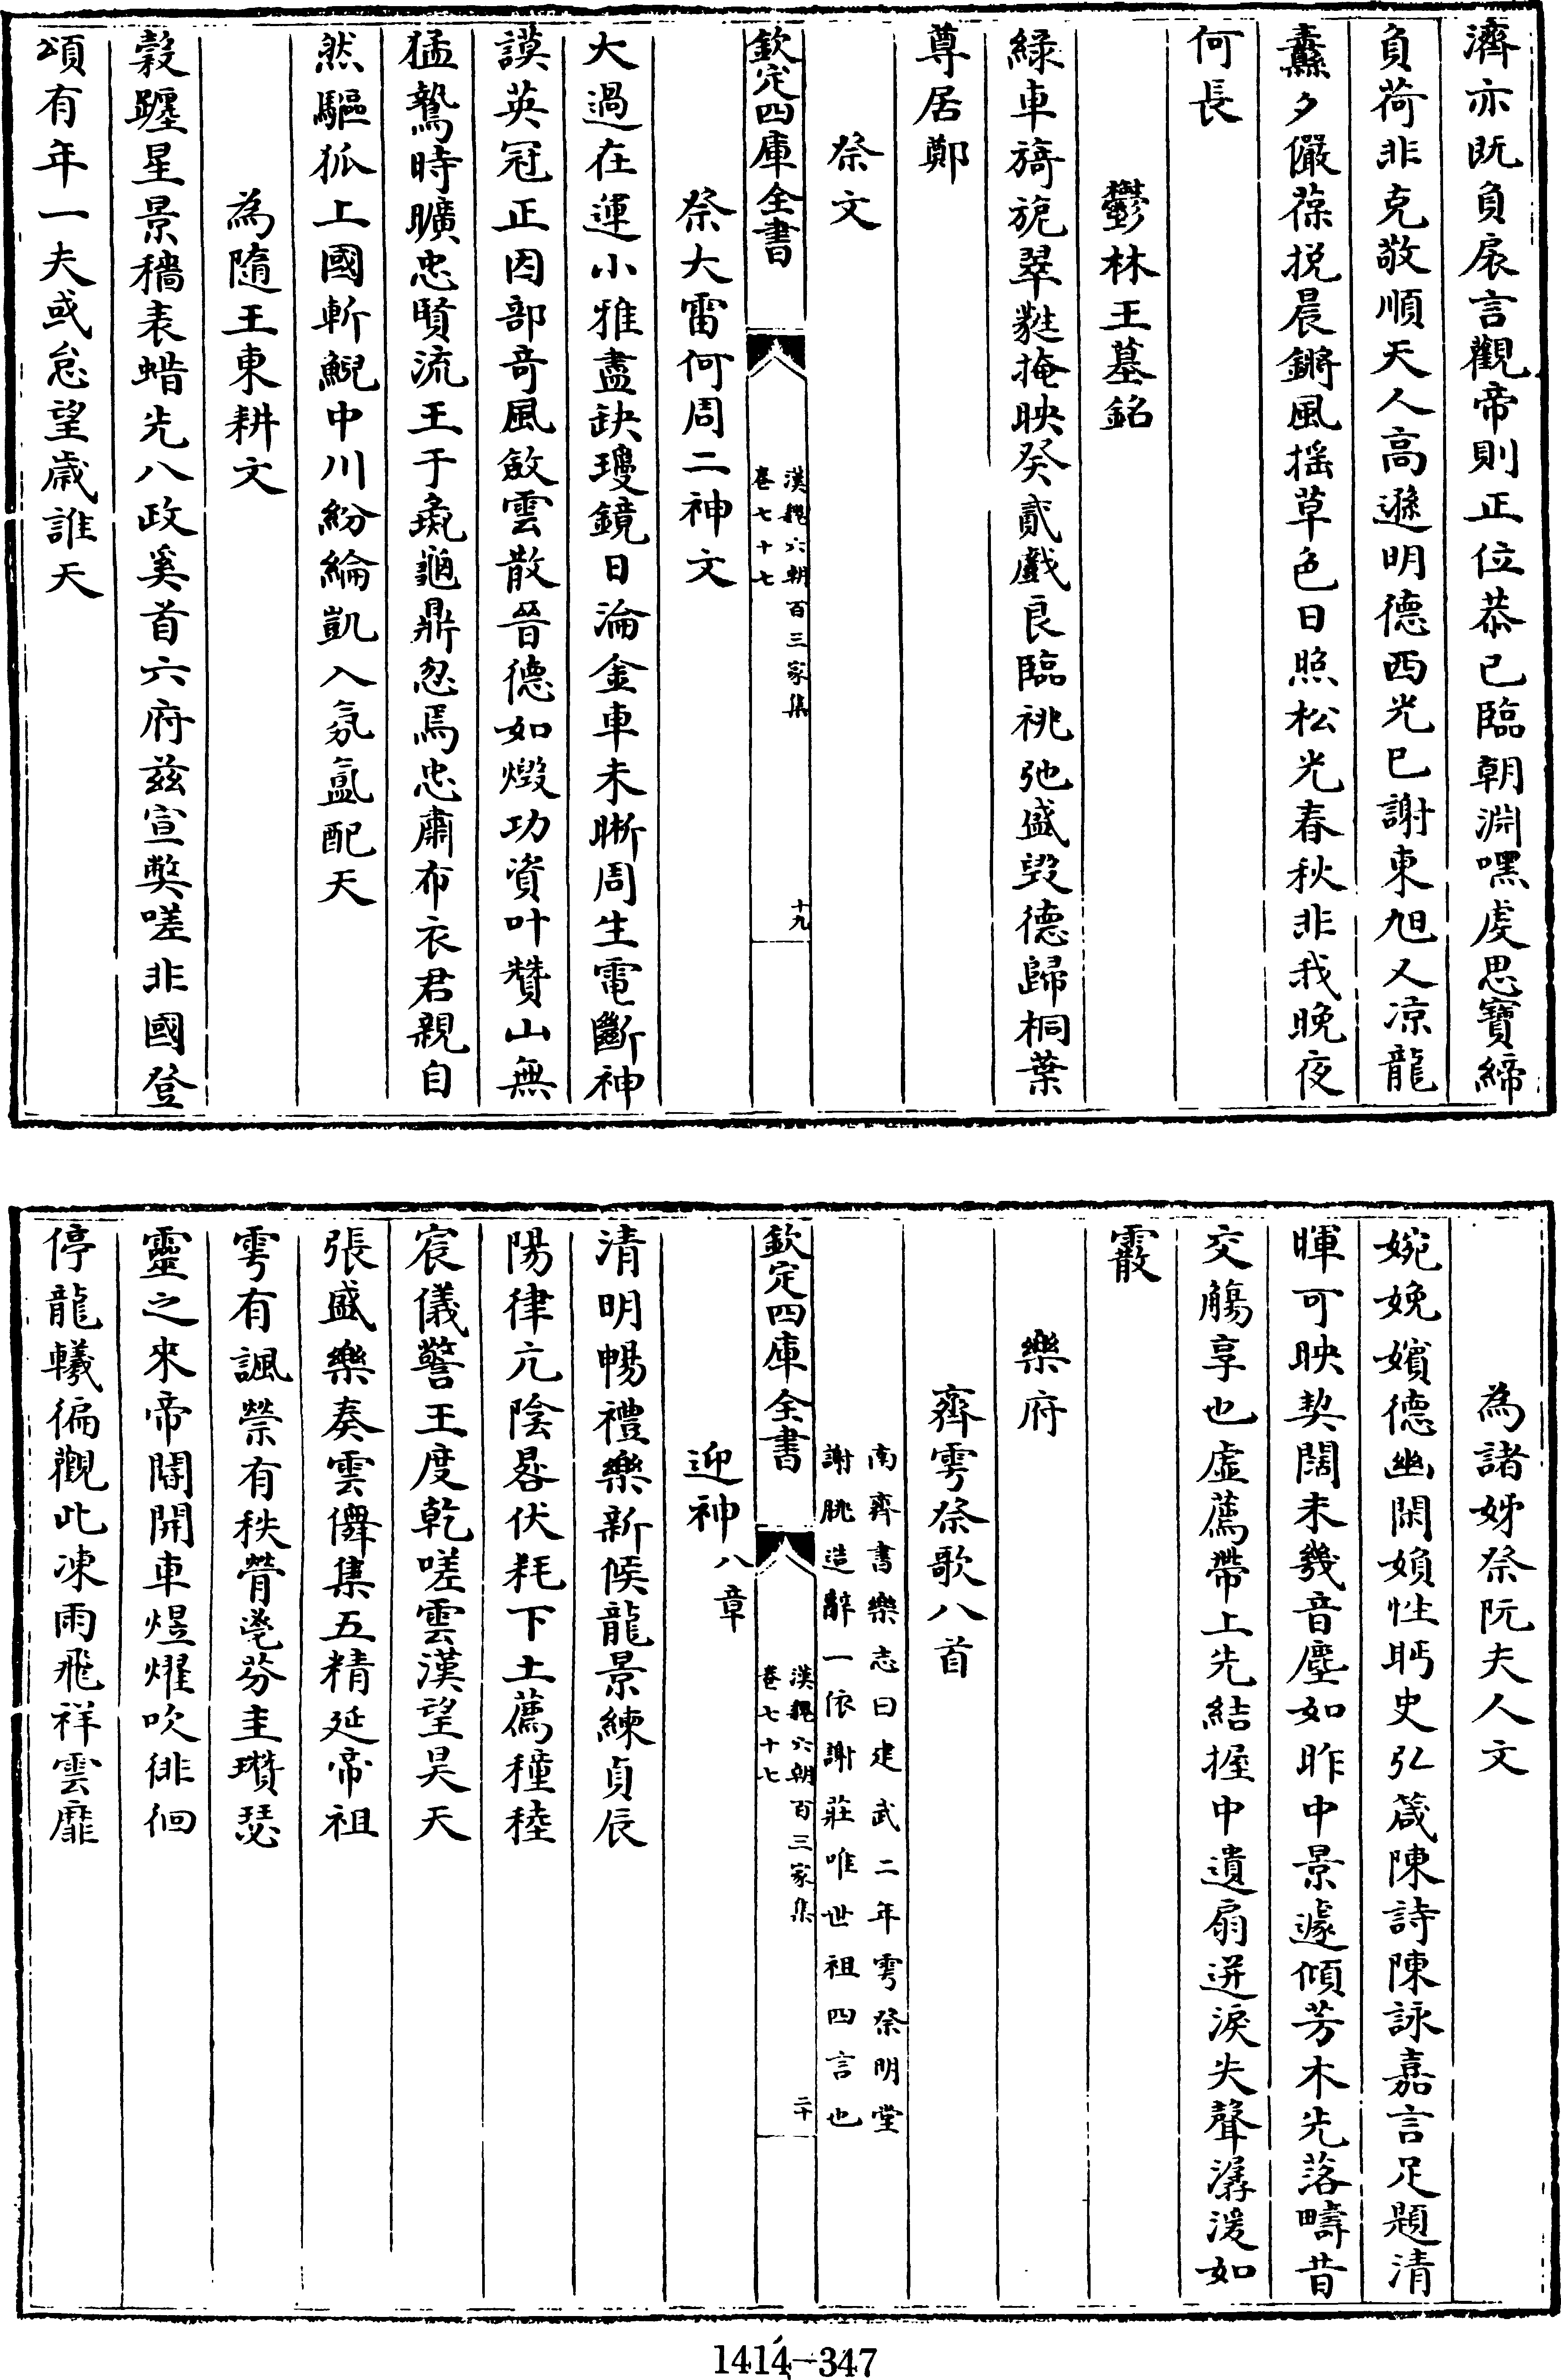 濟亦既負扆言觀帝則正位恭己臨朝淵嘿虔思寶締
負荷非克敬順天人高遜明德西光已謝東旭又凉龍
纛夕儼葆挽晨鏘風揺草色日照松光春秋非我晚夜
何長
鬱林王墓銘
綠車旖旎翠㲲掩映癸貳戲良臨祧弛盛毀德歸桐葉
尊居鄭
祭文
欽定四庫全書
漢魏六朝百三家集
卷七十七
十九
祭大雷何周二神文
大過在運小雅盡缺瓊鏡日淪金車未晣周生電斷神
謨英冠正因部竒風斂雲散晉德如燬功資叶贊山無
猛鷙時曠忠賢流王于彘遷鼎忽焉忠肅布衣君親自
然驅狐上國斬鯢中川紛綸凱入氛氳配天
為隨王東耕文
榖躔星景穡表蜡先八政奚首六府兹宣獘嗟非國登
頌有年一夫或怠望歲誰天
為諸姊祭阮夫人文
婉娩嬪德幽閑嬪性眄史弘箴陳詩陳詠嘉言足題清
暉可映契闊未幾音塵如昨中景遽傾芳木先落疇昔
交觴享也虛薦帶上先結握中遺扇迸淚失聲潺湲如
霰
樂府
齊雩祭歌八首
南齊書樂志曰建武二年雩祭明堂
謝朓造辭一依謝莊唯世祖四言也
欽定四庫全書
漢魏六朝百三家集
卷七十七
二十
迎神八章
清明暢禮樂新候龍景練貞辰
陽律亢陰晷伏耗下土薦穜稑
宸儀警王度乾嗟雲漢望昊天
張盛樂奏雲儛集五精延帝祖
雩有諷禜有秩膋鬯芬圭瓚瑟
靈之來帝閽開車煜燿吹徘徊
停龍轙徧觀此凍雨飛祥雲靡
1414—347